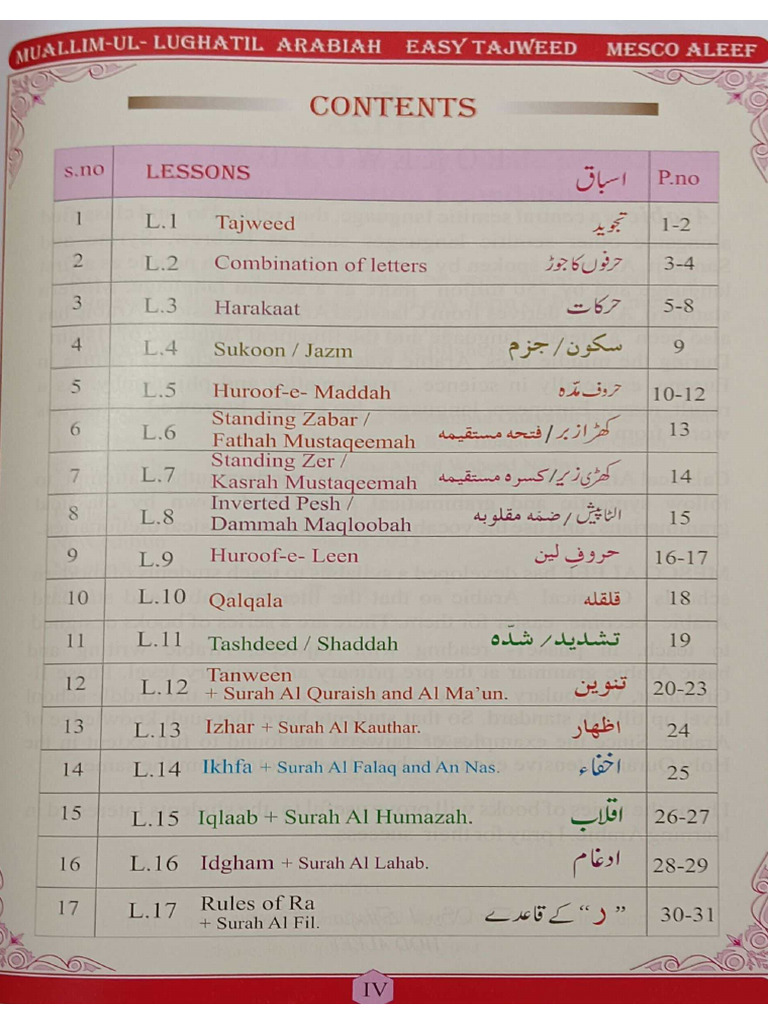 MUALLIM-UL- LUGHATIL ARABIAH EASY TAJWEED MESCO ALEEF
CONTENTS
s.no LESSONS اسباق P.no
1 L.1 Tajweed تجوید 1-2
2 L.2 Combination of letters حرفوں کا جوڑ 3-4
3 L.3 Harakaat حرکات 5-8
4 L.4 Sukoon / Jazm سکون/جزم 9
5 L.5 Huroof-e- Maddah حروف مدّہ 10-12
6 L.6 Standing Zabar /
Fathah Mustaqeemah کھڑا زبر/فتحہ مستقیمہ 13
7 L.7 Standing Zer /
Kasrah Mustaqeemah کھڑی زیر/کسرہ مستقیمہ 14
8 L.8 Inverted Pesh /
Dammah Maqloobah الٹا پیش/ضمّہ مقلوبہ 15
9 L.9 Huroof-e- Leen حروفِ لین 16-17
10 L.10 Qalqala قلقلہ 18
11 L.11 Tashdeed / Shaddah تشدید/شدّہ 19
12 L.12 Tanween
+ Surah Al Quraish and Al Ma'un. تنوین 20-23
13 L.13 Izhar + Surah Al Kauthar. اظہار 24
14 L.14 Ikhfa + Surah Al Falaq and An Nas. اخفاء 25
15 L.15 Iqlaab + Surah Al Humazah. اقلاب 26-27
16 L.16 Idgham + Surah Al Lahab. ادغام 28-29
17 L.17 Rules of Ra
+ Surah Al Fil. ”ر“ کے قاعدے 30-31
IV